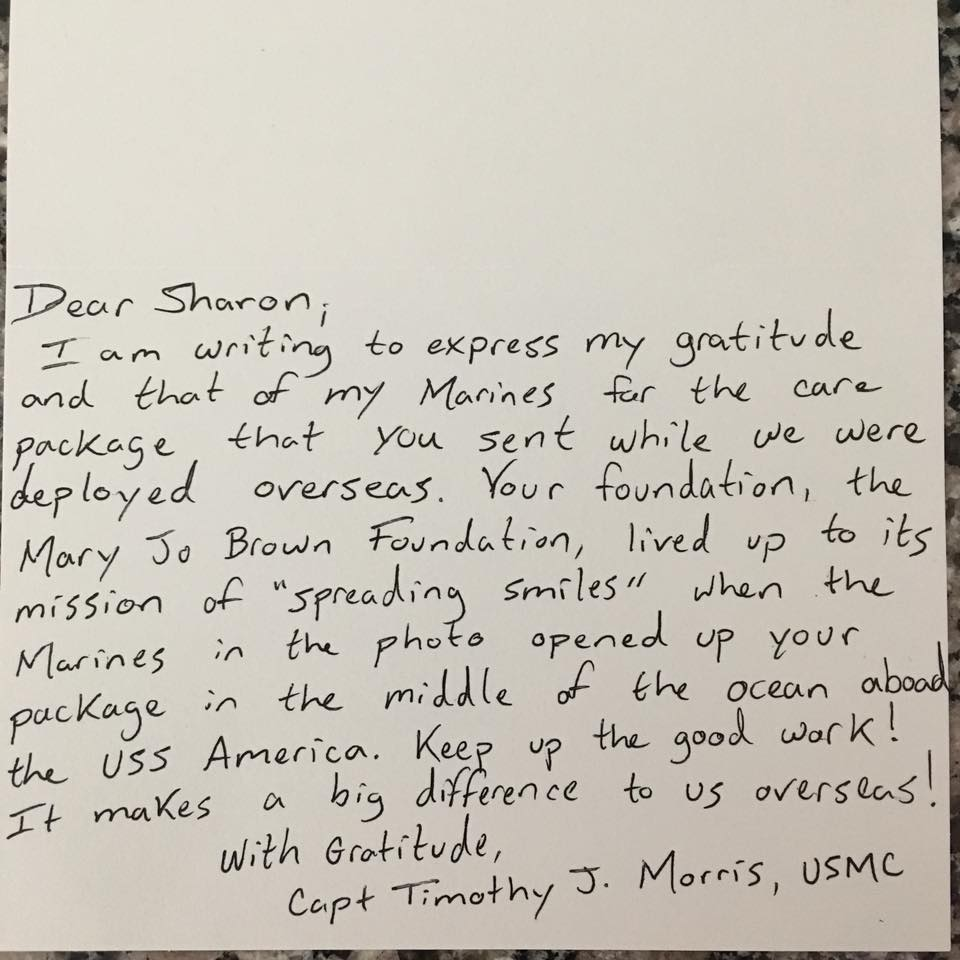 Dear Sharon;
I am writing to express my gratitude
and that of my Marines for the care
package that you sent while we were
deployed overseas. Your foundation, the
Mary Jo Brown Foundation, lived up to its
mission of "spreading smiles" when the
Marines in the photo opened up your
package in the middle of the ocean aboad
the USS America. Keep up the good work!
It makes a big difference to us overseas!
With Gratitude,
Capt Timothy J. Morris, USMC